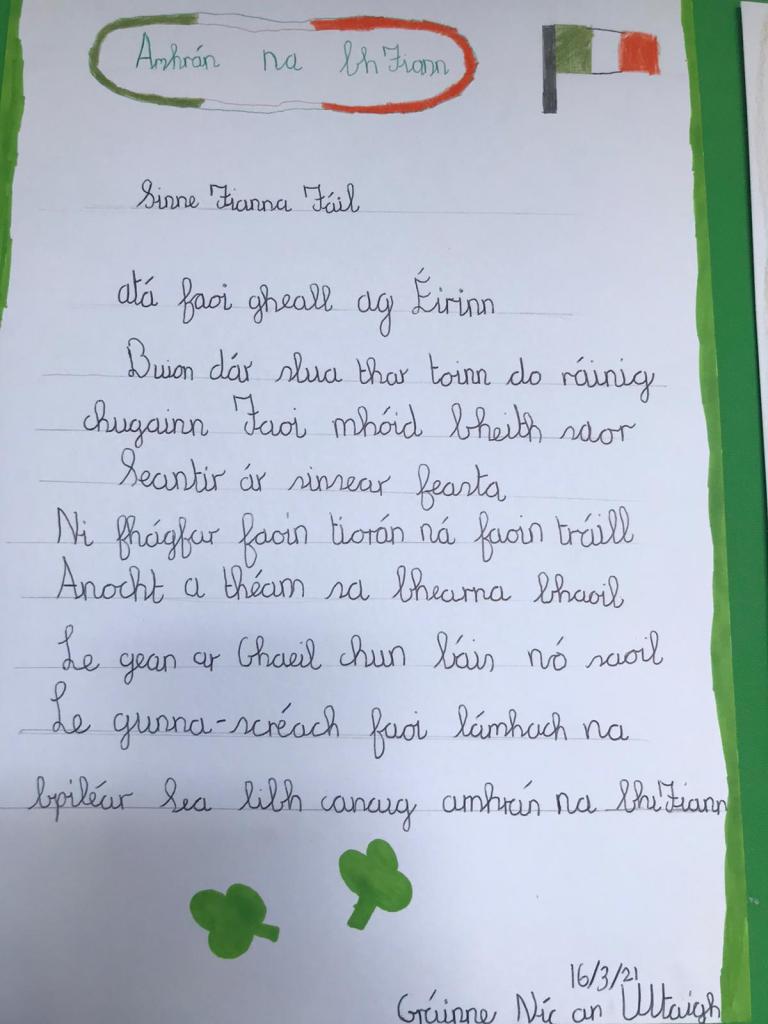 Amhrán na bhFiann
Sinne Fianna Fáil
atá faoi gheall ag Éirinn
Buion dár slua thar toinn do ráinig
chugainn Faoi mhóid bheith saor
Seantir ár sinsear feasta
Ni fhágfar faoin tiorán ná faoin tráill
Anocht a théam sa bhearna bhaoil
Le gean ar Ghaeil chun báis nó saoil
Le gunna-scréach faoi lámhach na
bpiléar Sea libh canaig amhrán na bhFiann
16/3/21
Gráinne Nic an Ultaigh